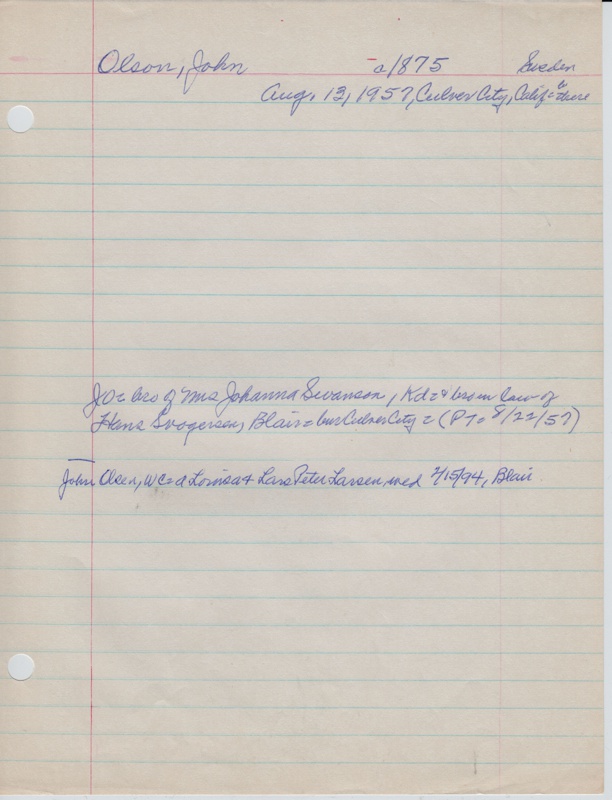 Olson, John a/875 Sweden
Aug. 13, 1957, Culver City, Calif = & there
JO = bro of Mrs Johanna Swanson, Kd = & bro in law of
Hans , Blair = bur Culver City = (PT = 8/22/57)
John Olsen, WC = d Lovisa & Lars Peter Larsen, wed 2/15/94, Blair